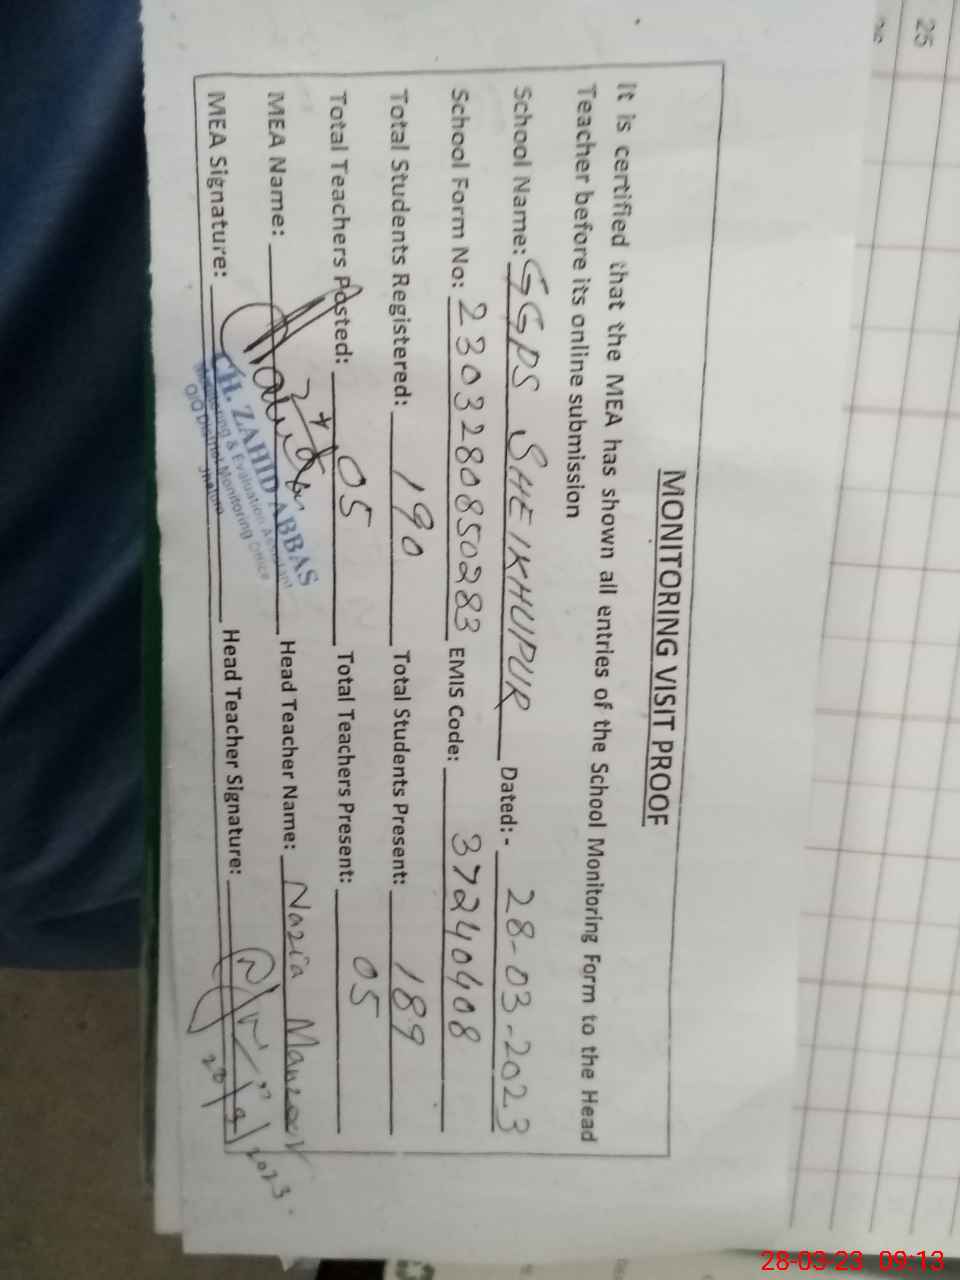 MONITORING VISIT PROOF
It is certified that the MEA has shown all entries of the School Monitoring Form to the Head
Teacher before its online submission
School Name: GGPS SHEIKHUPUR Dated:- 28-03-2023
School Form No: 2303280850283 EMIS Code: 37240408
Total Students Registered: 190 Total Students Present: 189
Total Teachers Posted: 05 Total Teachers Present: 05
MEA Name: Head Teacher Name: Nazia Manzoor
MEA Signature: Head Teacher Signature:
CH. ZAHID ABBAS
Monitoring & Evaluation Assistant
O/O District Monitoring Office
Jhelum
2023
25
28-03-23 09:13